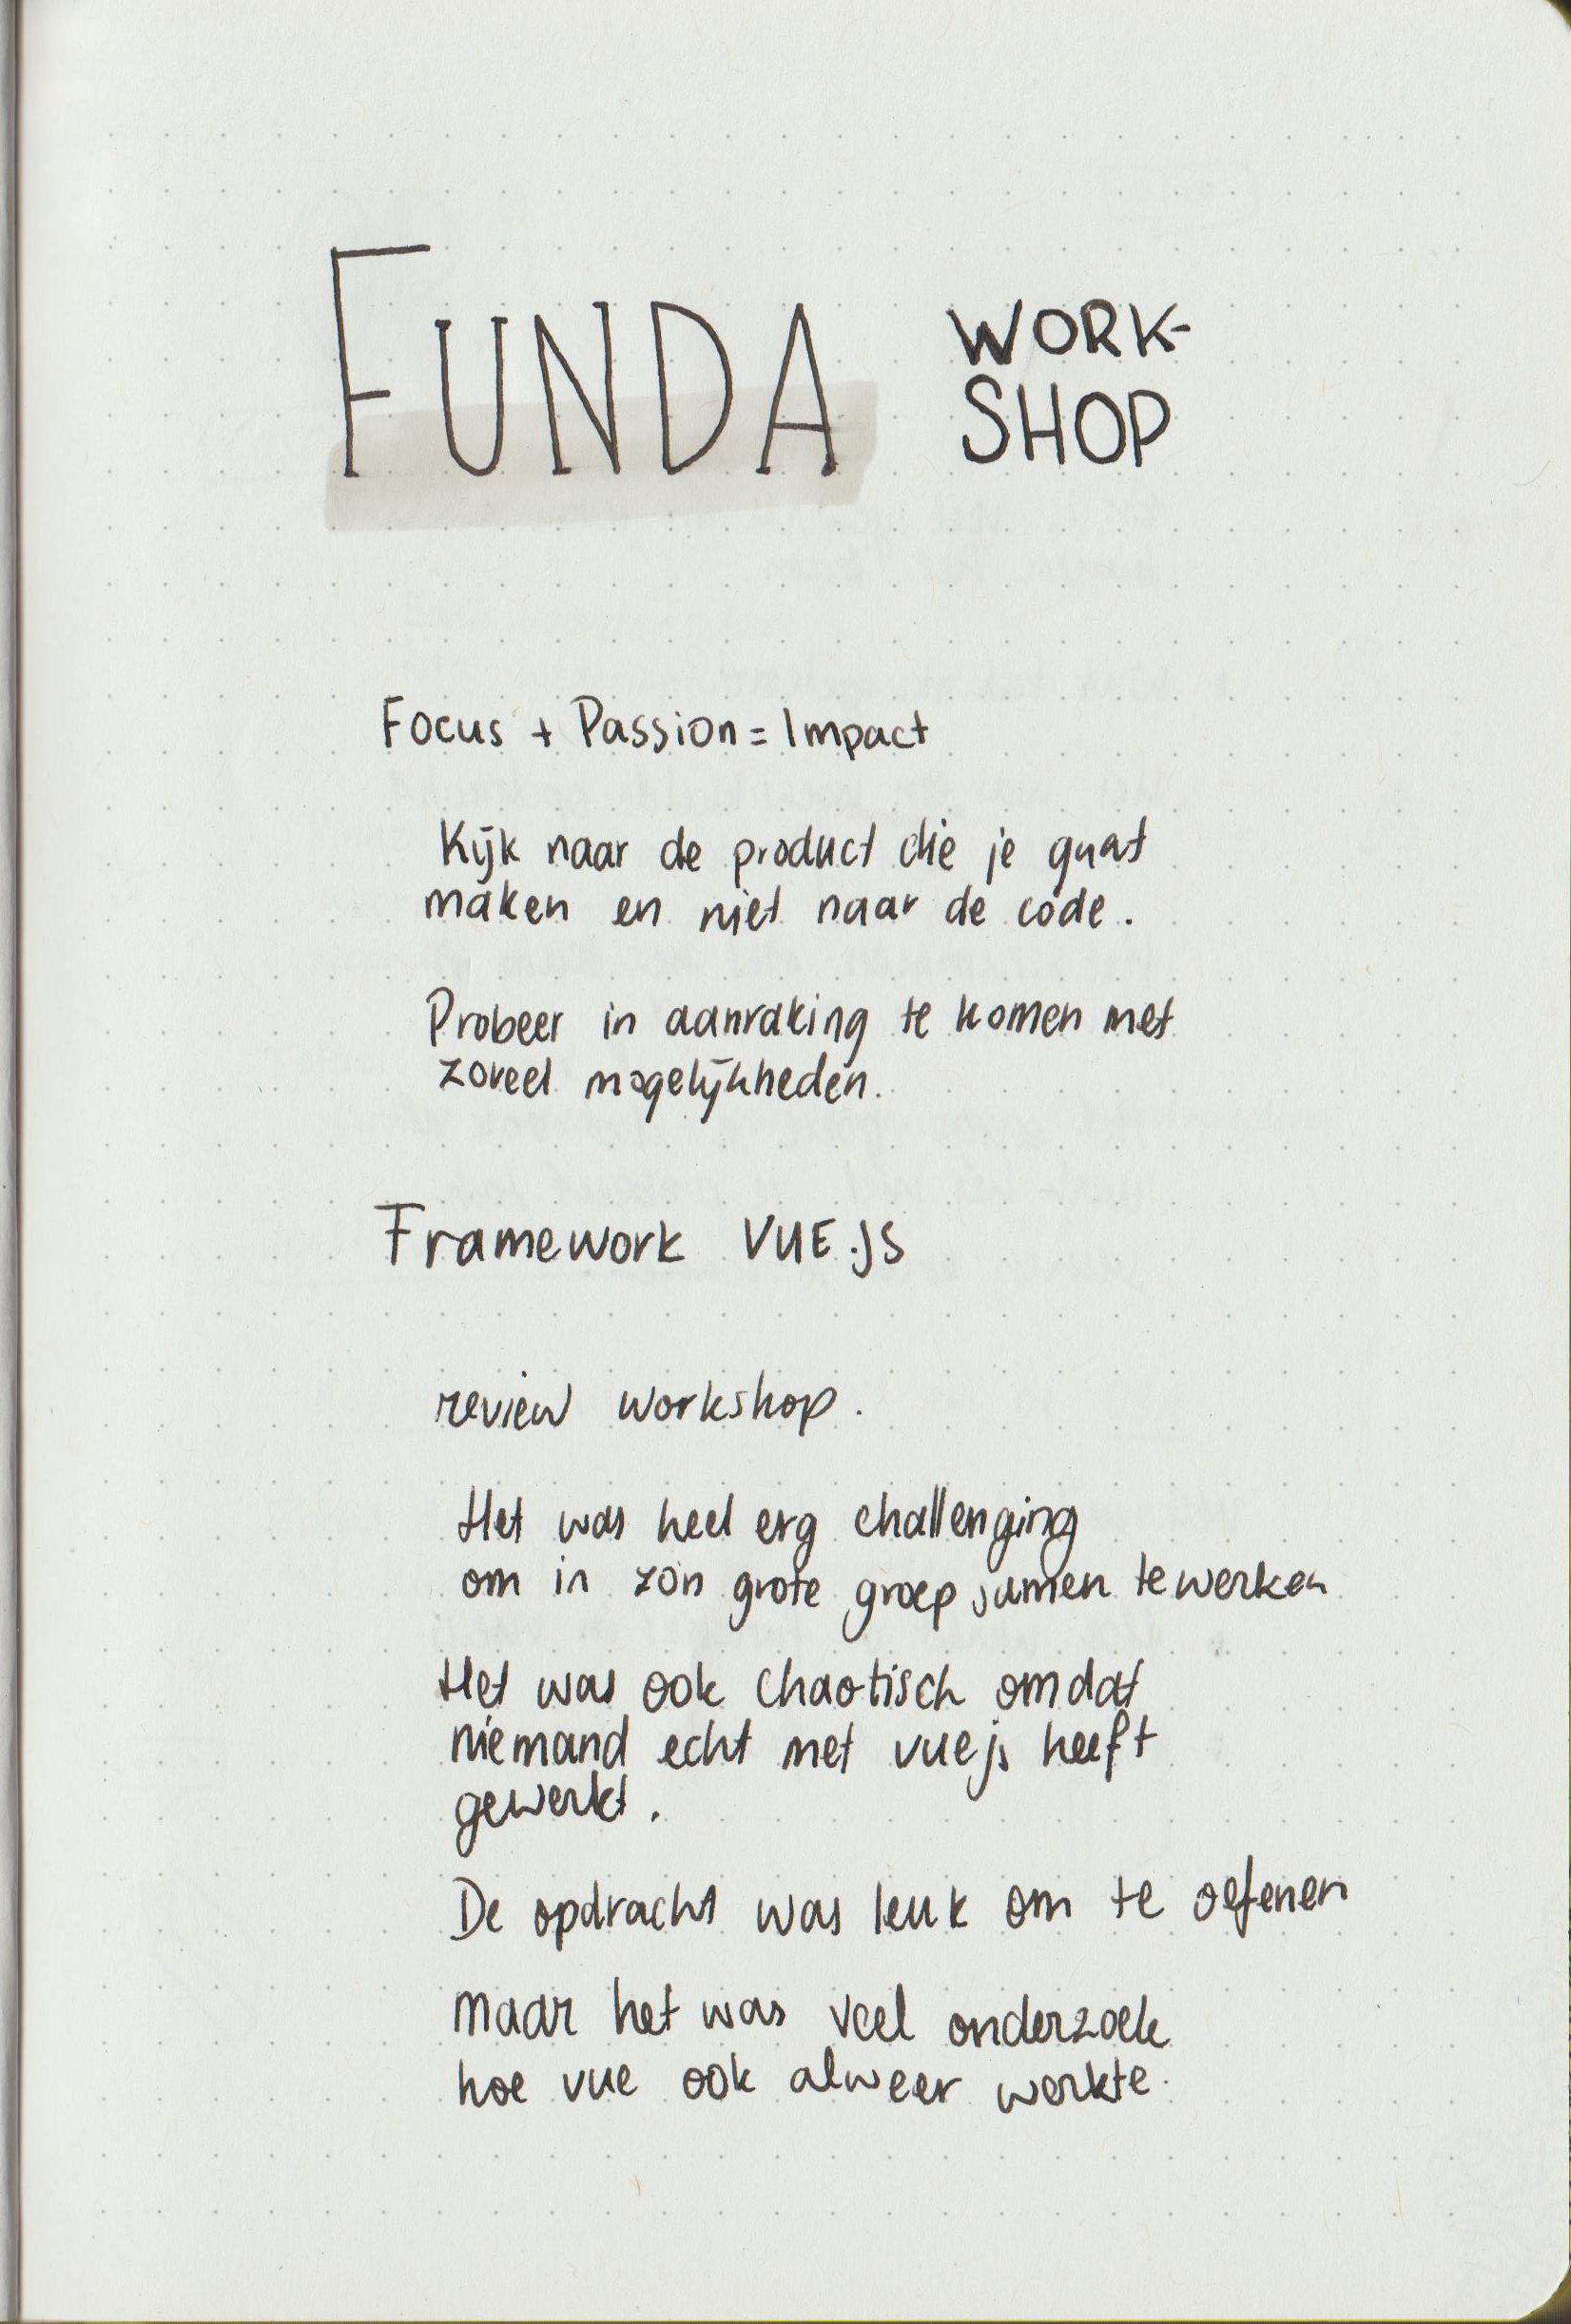 FUNDA WORK-
SHOP
Focus + Passion = Impact
Kijk naar de product die je gaat
maken en niet naar de code.
Probeer in aanraking te komen met
zoveel mogelijkheden.
Framework VUE.js
review workshop.
Het was heel erg challenging
om in zon grote groep samen te werken
Het was ook chaotisch omdat
niemand echt met vuejs heeft
gewerkt.
De opdracht was leuk om te oefenen
maar het was veel onderzoek
hoe vue ook alweer werkte.